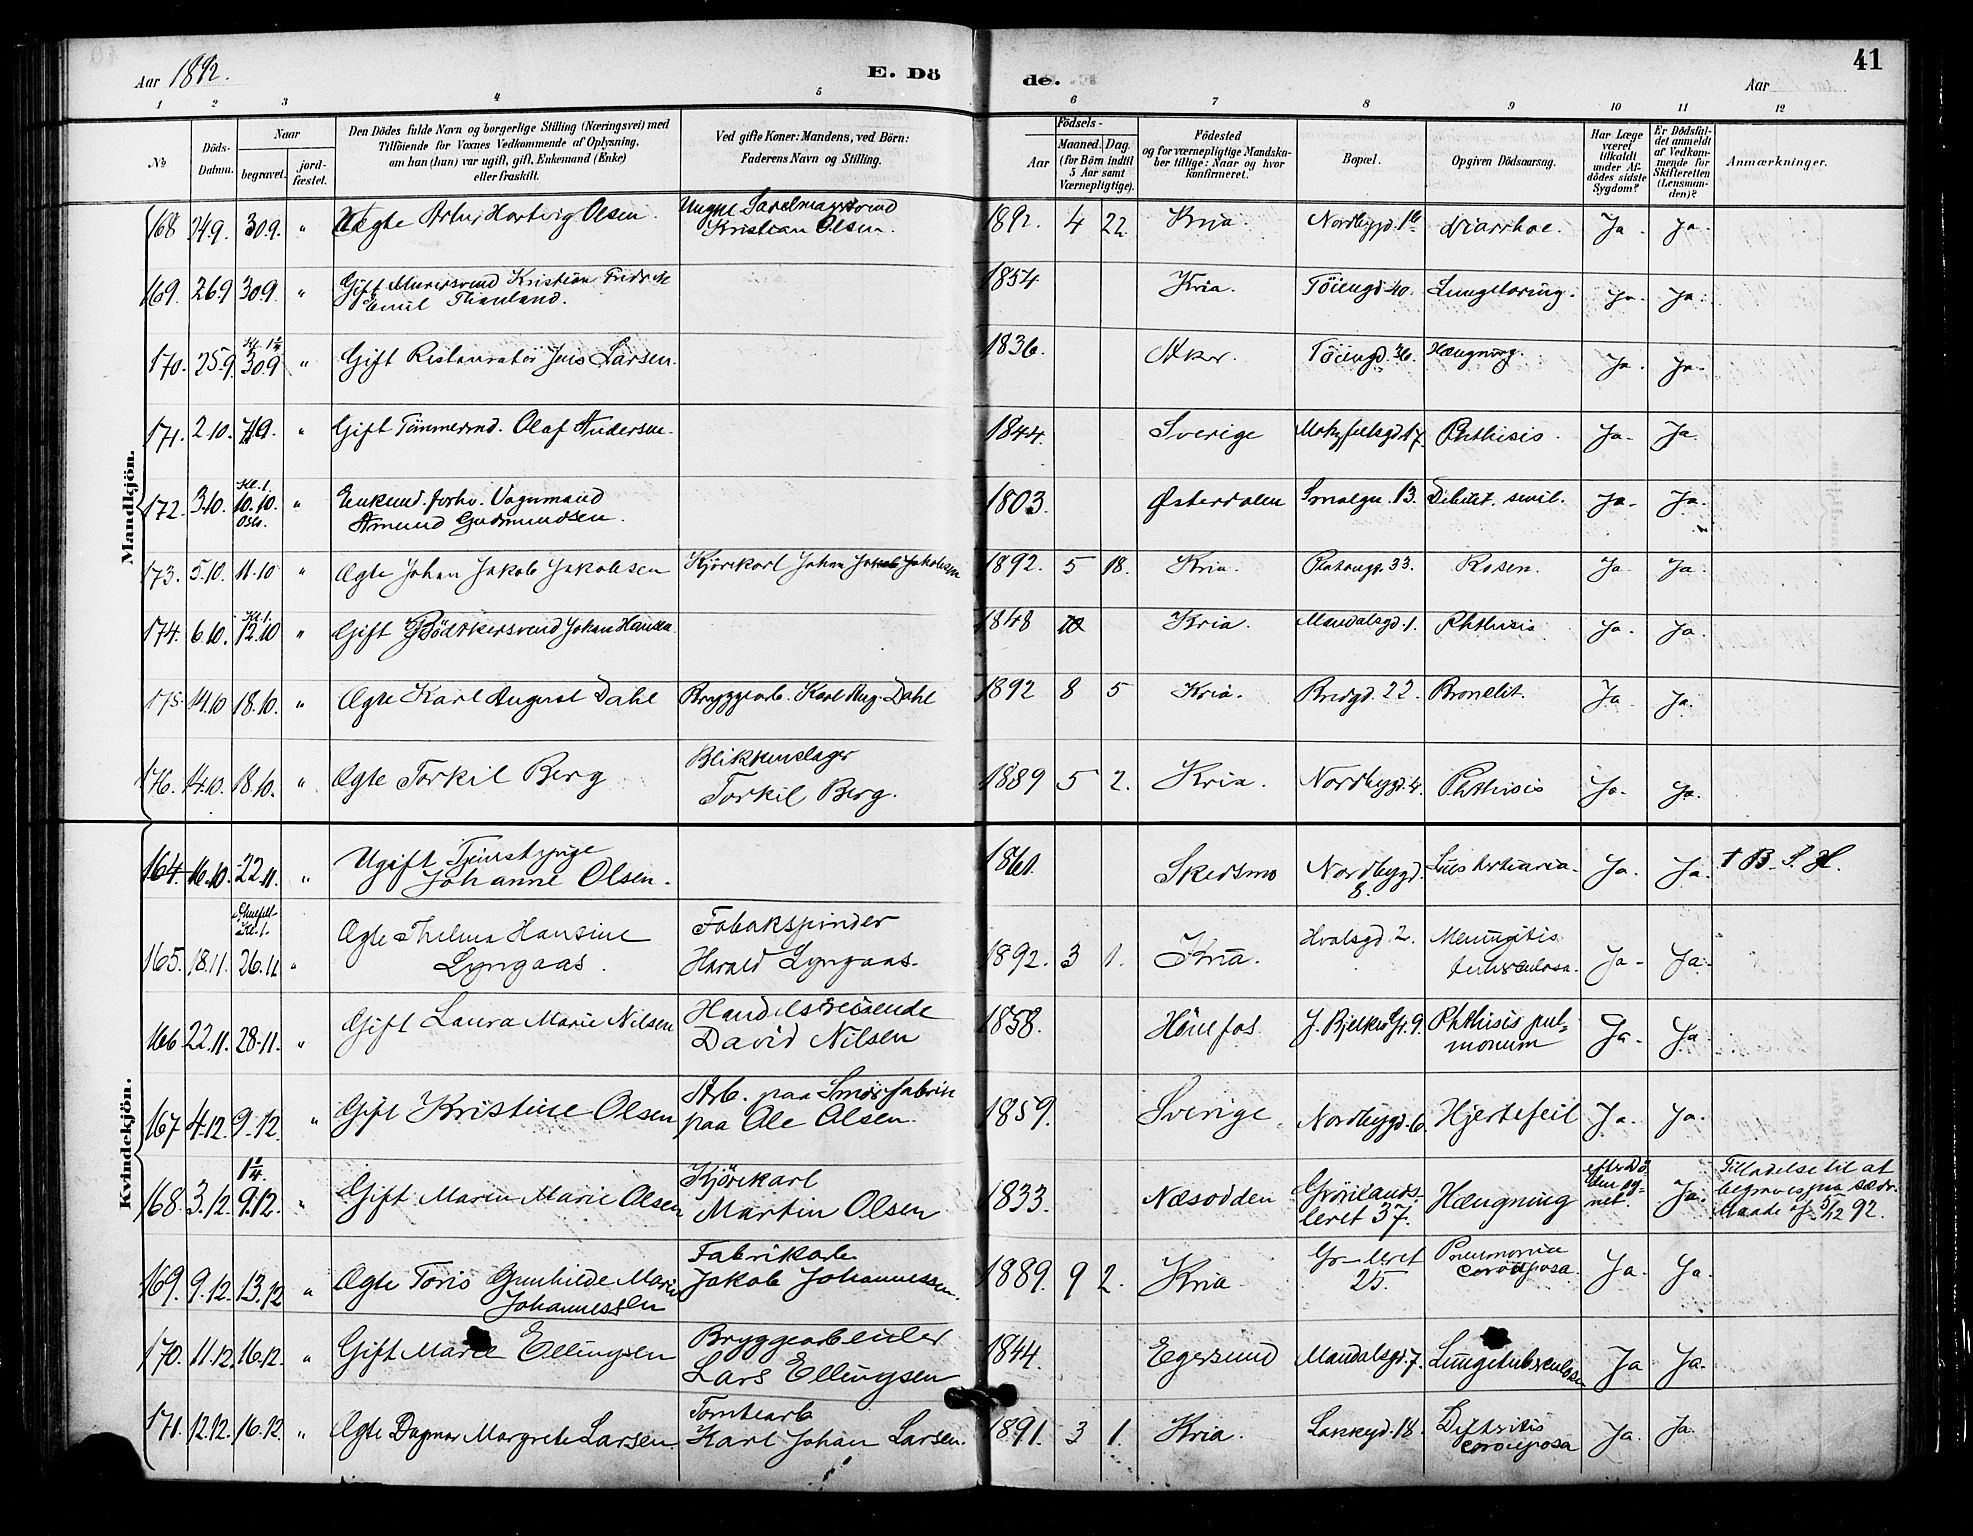 Aar 1892.
E. Döde.
Aar
41
1 2 3 4 5 6 7 8 9 10 11 12
No
Döds-Datum.
Naar
begravet.
jord-fæstet.
Den Dödes fulde Navn og borgerlige Stilling (Næringsvei) med
Tilföiende for Voxnes Vedkommende af Oplysning,
om han (hun) var ugift, gift, Enkemand (Enke)
eller fraskilt.
Ved gifte Koner: Mandens, ved Börn:
Faderens Navn og Stilling.
Födsels-
Aar
Maaned. Dag.
(for Börn indtil
5 Aar samt
Værnepligtige).
Födested
og for værnepligtige Mandska-
ber tillige: Naar og hvor
konfirmeret.
Bopæl.
Opgiven Dödsaarsag.
Har Læge
været
tilkaldt
under Af-
dödes sidste
Sygdom?
Er Dödsfal-
det anmeldt
af Vedkom-
mende for
Skifteretten
(Lensman-
den)?
Anmærkninger.
Mandkjön.
168 24.9. 30.9. " Ægte Artur Hartvig Olsen. Kristian Olsen. 1892. 4 22. Kria. Nordbygd. 16 Diarrhoe. Ja. Ja.
169. 26.9 30.9. " Gift Murersvend Kristian Fredrik
Emil Thauland. 1854 Kria. Töiengd. 40. Lungetæring. Ja. Ja.
170. 25.9. Kl. 1¼ 30.9 " Gift Restauratör Jens Larsen. 1836. Aker. Töiengd. 36. Hængning. Ja. Ja.
171. 2.10. " Gift Tömmermd. Olaf Andersen. 1844. Sverige Phthisis. Ja. Ja.
172. 3.10. Kl. 1. 10.10. Oslo. " Enkemd. forhv. Vognmand
Amund Gudmundsen. 1803. Østerdalen Smalgn. 13. Debilit. senil. Ja. Ja.
173. 5.10. 11.10 " Ægte Johan Jakob Jakobsen Kjörekarl Johan Jakob Jakobsen 1892. 5 18. Kria. Platougd. 33. Rosen. Ja. Ja.
174. 6.10. Kl. 1. 12.10 " Gift Bödtkersvend Johan Hansen. 1848 Kria. Mandalsgd. 1. Phthisis Ja. Ja.
175. 14.10 18.10. " Ægte Karl August Dahl Bryggearb. Karl Aug. Dahl 1892 8 5 Kria. Bredgd. 22. Bronchit. Ja. Ja.
176. 14.10. 18.10. " Ægte Torkil Berg Blikkenslager
Torkil Berg. 1889 5 2. Kria. Nordbygd. 4. Phthisis Ja. Ja.
Kvindekjön.
164. 16.10. 22.11. " Ugift Tjenstpige
Johanne Olsen. 1861. Skedsmo Nordbygd.
8. Lues tertiaria. Ja. Ja. † B. S. H.
165. 18.11. Kl. 1. 26.11 " Ægte Thelma Hansine
Lyngaas. Tobakspinder
Harald Lyngaas. 1892. 3 1. Kria. Hvalsgd. 2. Meningitis
tuberculosa. Ja. Ja.
166 22.11. 28.11. " Gift Laura Marie Nilsen Handelsreisende
David Nilsen 1858. Hönefos J. Bjelkes Gt. 9. Phthisis pul-
monum Ja. Ja.
167 4.12. 9.12. " Gift Kristine Olsen Arb. paa Smörfabrik
paa Ole Olsen. 1859. Sverige. Nordbygd. 6. Hjertefeil Ja. Ja.
168. 3.12. 1¼ 9.12. " Gift Maren Marie Olsen Kjörekarl
Martin Olsen 1833. Næsodden Grönlands-
leret 37. Hængning Ja. Tilladelse til at
begraves paa sædv.
Maade af 5/12 92.
169. 9.12. 13.12 " Ægte Toris Gunhilde Marie
Johannessen Fabrikarb.
Jakob Johannessen. 1889. 9 2. Kria Gr-leret
25. Pneumonia
crouposa. Ja. Ja.
170. 11.12. 16.12. " Gift Marie Ellingsen Bryggearbeider
Lars Ellingsen 1844. Egersund Mandalsgd. 7. Lungetuberculose Ja Ja.
171. 12.12. 16.12. " Ægte Dagmar Margrete Larsen. Tomtearb
Karl Johan Larsen. 1891. 3 1. Kria. Lakkegd. 18. Difthritis
crouposa Ja. Ja.